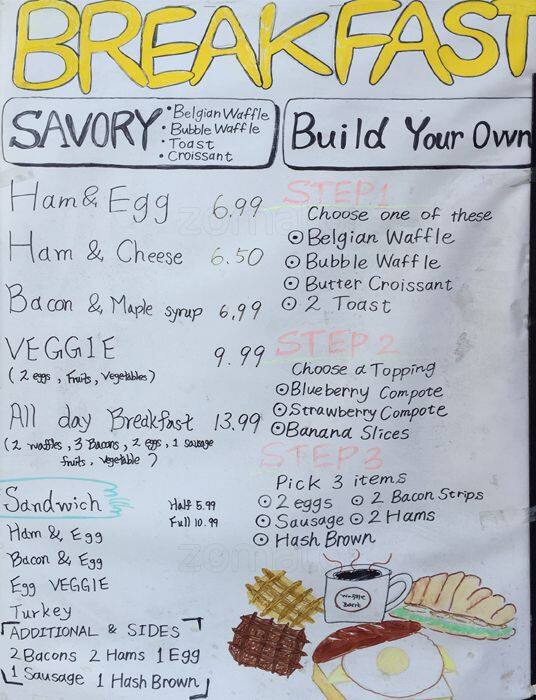 BREAKFAST
SAVORY
• Belgian Waffle
• Bubble Waffle
• Toast
• Croissant
Ham & Egg 6.99
Ham & Cheese 6.50
Bacon & Maple syrup 6.99
VEGGIE 9.99
(2 eggs, Fruits, Vegetables)
All day Breakfast 13.99
(2 waffles, 3 Bacons, 2 eggs, 1 sausage
fruits, vegetable)
Sandwich
Half 5.99
Full 10.99
Ham & Egg
Bacon & Egg
Egg VEGGIE
Turkey
ADDITIONAL & SIDES
2 Bacons 2 Hams 1 Egg
1 Sausage 1 Hash Brown
Build Your Own
STEP 1
Choose one of these
⊙ Belgian Waffle
⊙ Bubble Waffle
⊙ Butter Croissant
⊙ 2 Toast
STEP 2
Choose a Topping
⊙ Blueberry Compote
⊙ Strawberry Compote
⊙ Banana Slices
STEP 3
Pick 3 items
⊙ 2 eggs ⊙ 2 Bacon Strips
⊙ Sausage ⊙ 2 Hams
⊙ Hash Brown